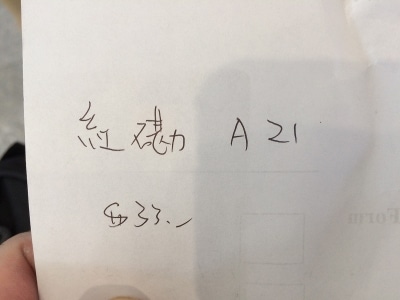 紅磡 A21
$33.-
Form